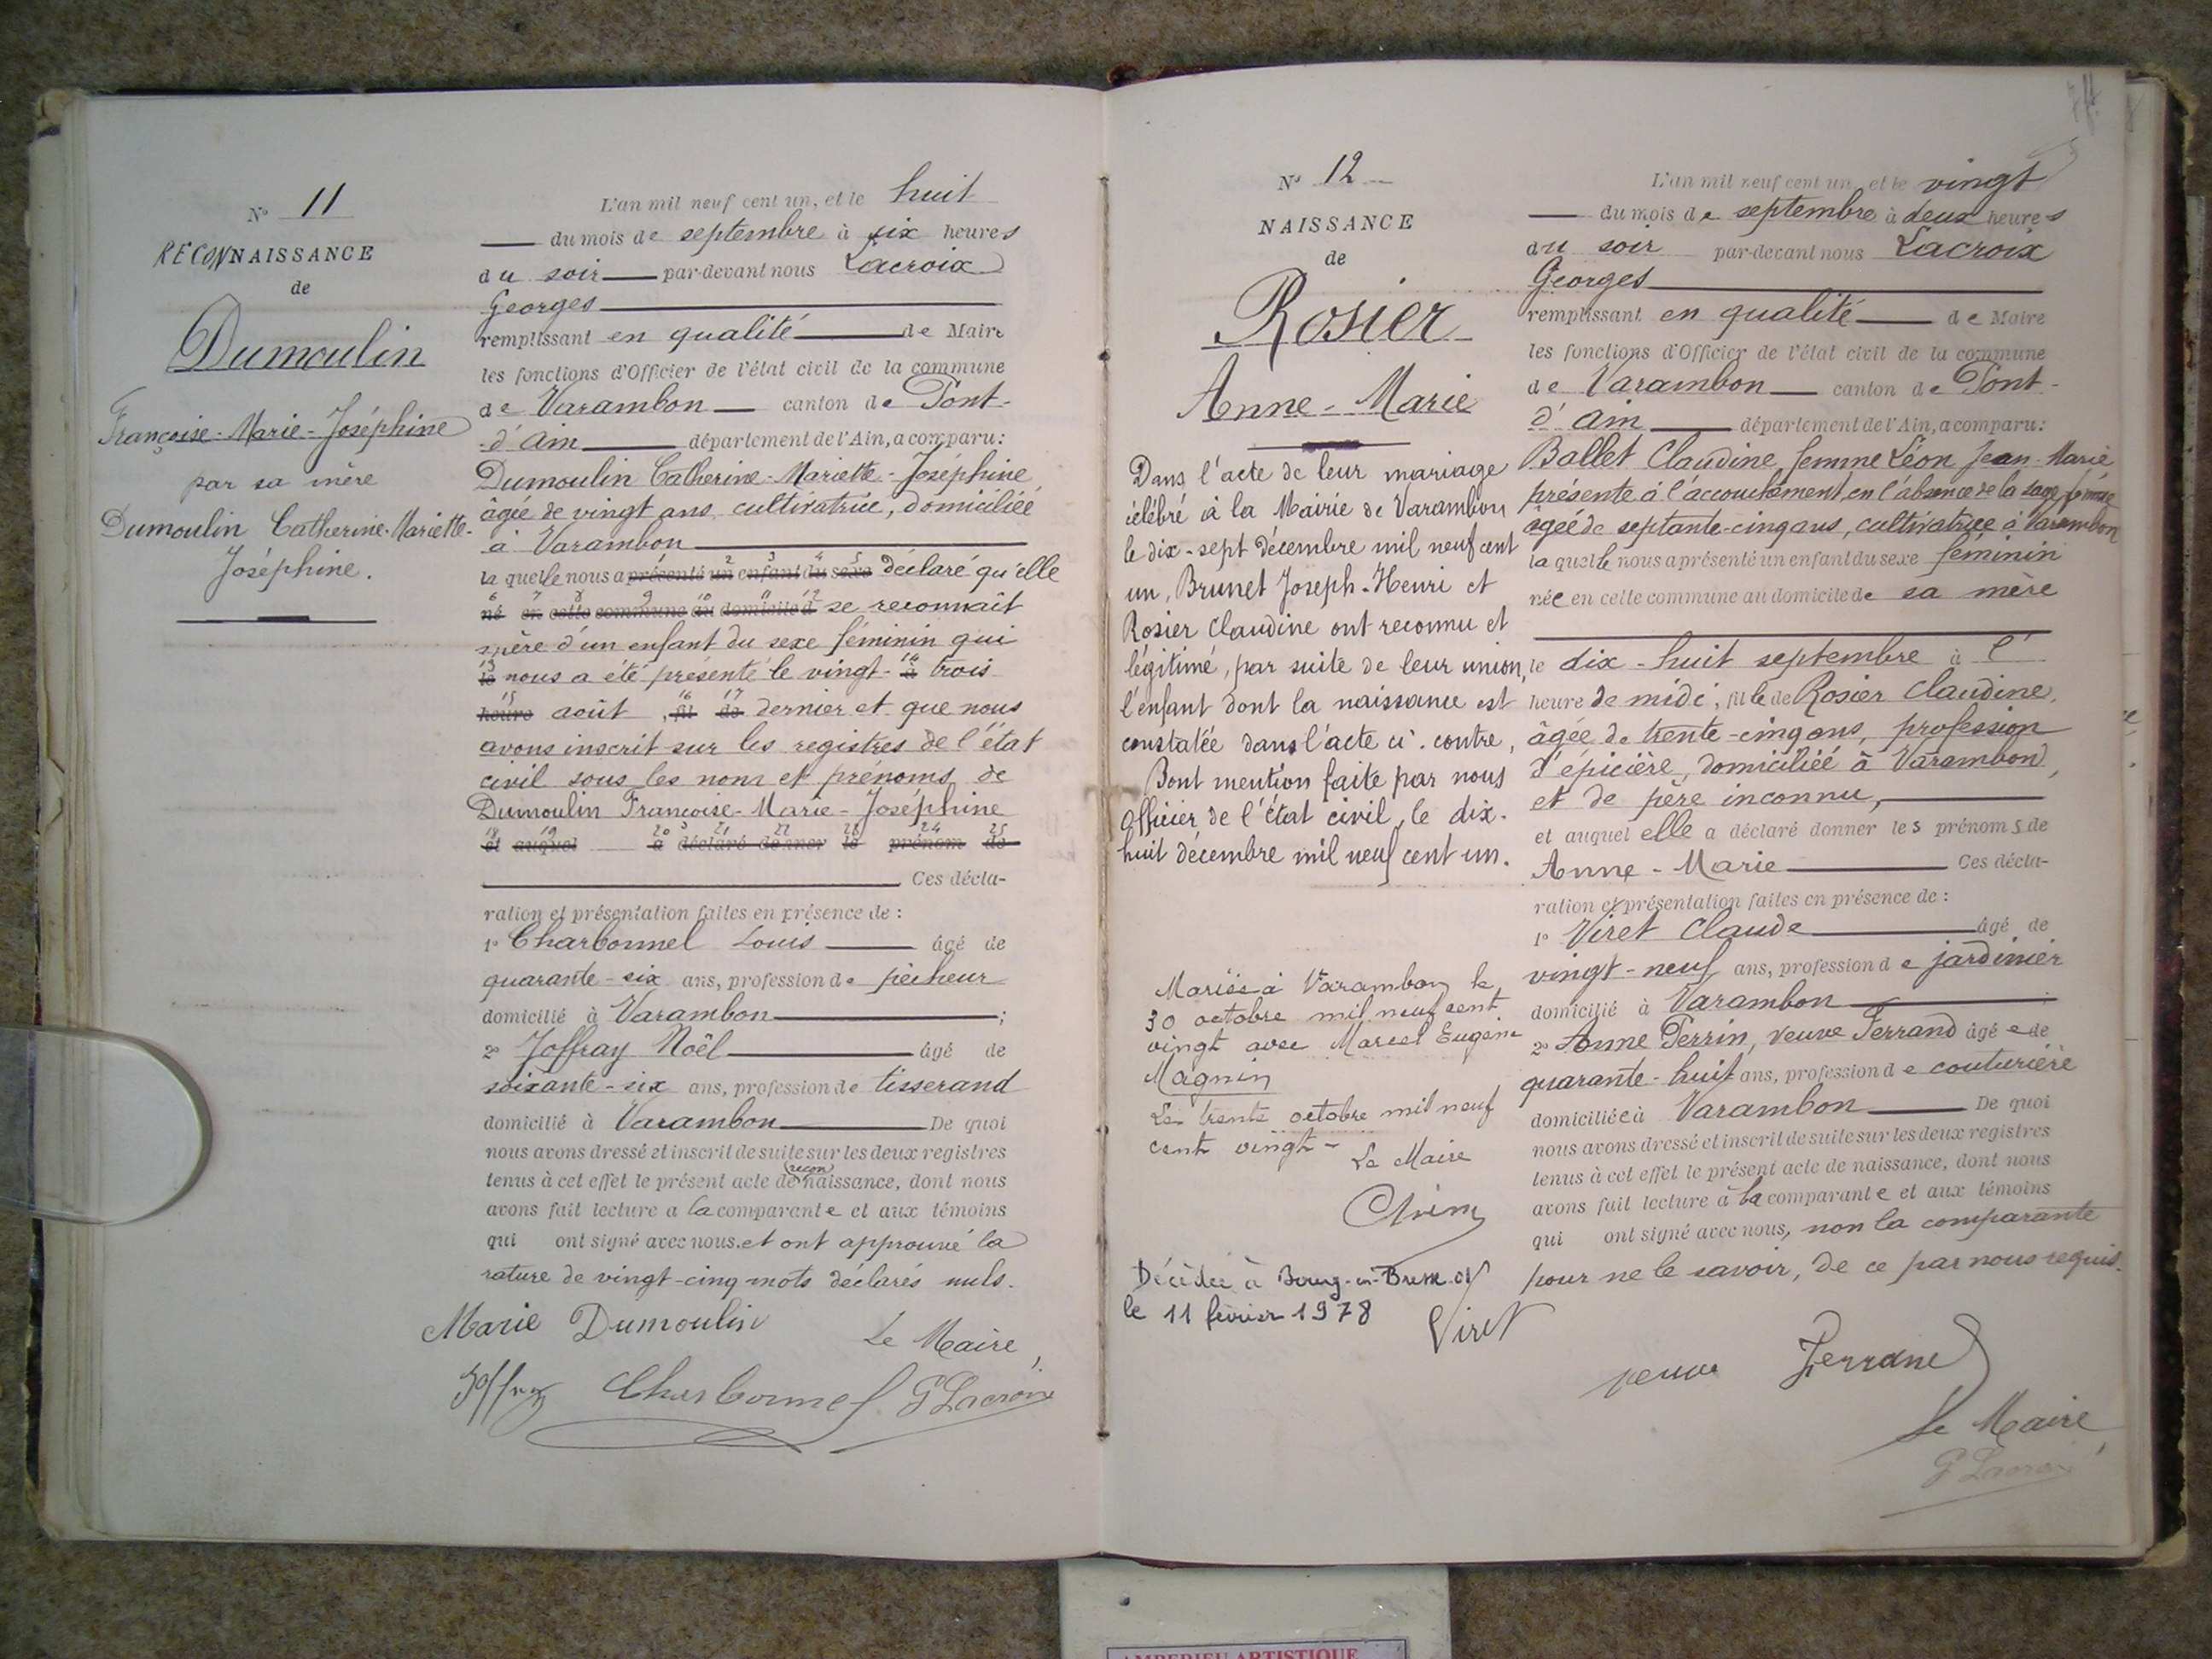 N° 11
RECONNAISSANCE
de
Dumoulin
Françoise-Marie-Joséphine
par sa mère
Dumoulin Catherine-Mariette-
Joséphine.
L'an mil neuf cent un, et le huit
du mois de septembre à six heures
du soir par-devant nous Lacroix
Georges
remplissant en qualité de Maire
les fonctions d'Officier de l'état civil de la commune
de Varambon canton de Pont-
-d'Ain département de l'Ain, a comparu:
Dumoulin Catherine-Mariette-Joséphine,
âgée de vingt ans, cultivatrice, domiciliée
à Varambon
la quelle nous a présenté un enfant du sexe déclaré qu'elle
né en cette commune au domicile d se reconnaît
mère d'un enfant du sexe féminin qui
le nous a été présenté le vingt- à trois
heure août , fil de dernier et que nous
avons inscrit sur les registres de l'état
civil sous les nom et prénoms de
Dumoulin Françoise-Marie-Joséphine
et auquel a déclaré donner le prénom de
Ces décla-
ration et présentation faites en présence de :
1° Charbonnel Louis âgé de
quarante-six ans, profession de pêcheur
domicilié à Varambon ;
2° Joffray Noël âgé de
soixante-six ans, profession de tisserand
domicilié à Varambon De quoi
nous avons dressé et inscrit de suite sur les deux registres
tenus à cet effet le présent acte de (recon)naissance, dont nous
avons fait lecture a la comparante et aux témoins
qui ont signé avec nous. et ont approuvé la
rature de vingt-cinq mots déclarés nuls.
Marie Dumoulin Le Maire,
Joffray Charbonnel G Lacroix
N° 12
NAISSANCE
de
Rosier
Anne-Marie
Dans l'acte de leur mariage
célébré à la Mairie de Varambon
le dix-sept décembre mil neuf cent
un, Brunet Joseph-Henri et
Rosier Claudine ont reconnu et
légitimé, par suite de leur union,
l'enfant dont la naissance est
constatée dans l'acte ci-contre,
Dont mention faite par nous
Officier de l'état civil, le dix-
huit décembre mil neuf cent un.
Mariée à Varambon le
30 octobre mil neuf cent
vingt avec Marcel Eugène
Magnin
Le trente octobre mil neuf
cent vingt -
Le Maire
Décédée à Bourg-en-Bresse 01
le 11 février 1978
L'an mil neuf cent un, et le vingt
du mois de septembre à deux heures
du soir par-devant nous Lacroix
Georges
remplissant en qualité de Maire
les fonctions d'Officier de l'état civil de la commune
de Varambon canton de Pont-
d'Ain département de l'Ain, a comparu:
Ballet Claudine, femme Léon Jean-Marie
présente à l'accouchement, en l'absence de la sage femme
âgée de septante-cinq ans, cultivatrice à Varambon
la quelle nous a présenté un enfant du sexe féminin
née en cette commune au domicile de sa mère
le dix-huit septembre à l'
heure de midi, fille de Rosier Claudine,
âgée de trente-cinq ans, profession
d'épicière, domiciliée à Varambon,
et de père inconnu,
et auquel elle a déclaré donner les prénoms de
Anne-Marie Ces décla-
ration et présentation faites en présence de :
1° Viret Claude âgé de
vingt-neuf ans, profession de jardinier
domicilié à Varambon
2° Anne Perrin, veuve Ferrand âgée de
quarante-huit ans, profession de couturière
domiciliée à Varambon De quoi
nous avons dressé et inscrit de suite sur les deux registres
tenus à cet effet le présent acte de naissance, dont nous
avons fait lecture à la comparante et aux témoins
qui ont signé avec nous, non la comparante
pour ne le savoir, de ce par nous requis.
Viret
veuve Ferrand
Le Maire,
G Lacroix
AMBERIEU ARTISTIQUE